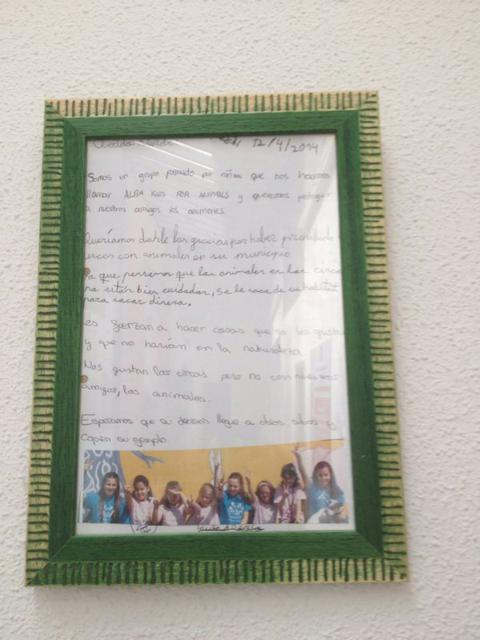 12/4/2014
Somos un grupo formado por niñas que nos hacemos
llamar ALBA KIDS FOR ANIMALS y queremos proteger
a nuestros amigos los animales.
Queríamos darle las gracias por haber prohibido
circos con animales en su municipio
ya que pensamos que los animales en los circos
no están bien cuidados, se le saca de su hábitat
para sacar dinero.
les fuerzan a hacer cosas que no les gusta
y que no harían en la naturaleza
Nos gustan los circos pero no con nuestros
amigos, los animales.
Esperamos que su decisión llegue a otros sitios y
copien su ejemplo.